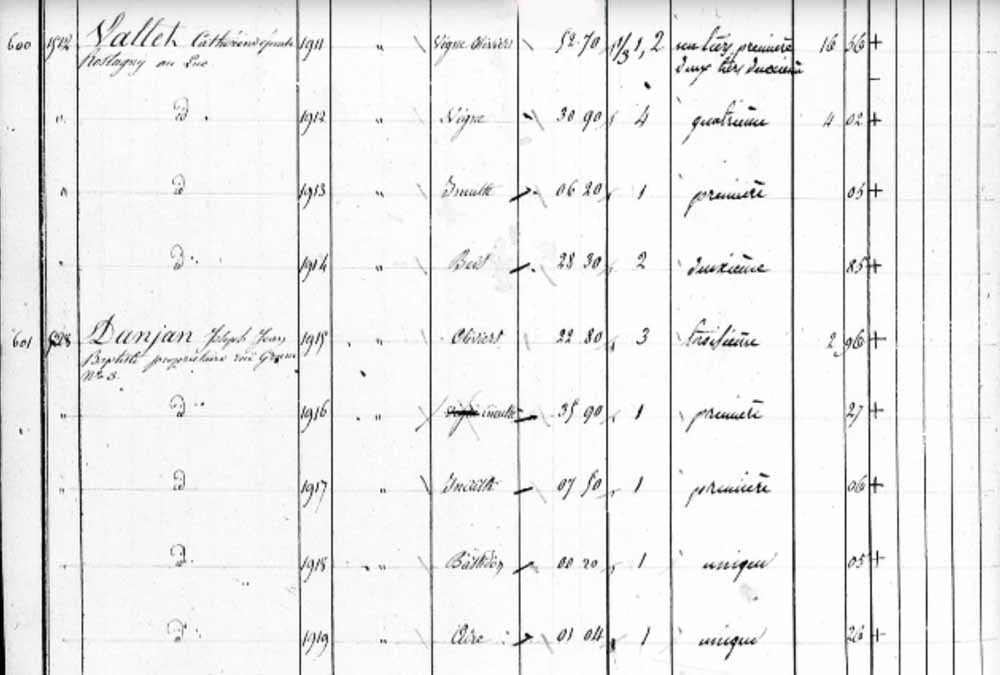 600 1512 Vallet Catherine épouse 1911 " Vigne Oliviers 52 70 1/3 1, 2 un tiers première 16 56 +
Rostagny au Luc deux tiers deuxième
" d 1912 " Vigne 30 90 4 quatrième 4 02 +
" d 1913 " Inculte 06 20 1 première 05 +
" d 1914 " Bois 28 30 2 deuxième 85 +
601 528 Danjan Joseph Jean 1915 " Oliviers 22 80 3 troisième 2 96 +
Baptiste propriétaire rue
No 3.
" d 1916 " inculte 35 90 1 première 27 +
" d 1917 " Inculte 07 50 1 première 06 +
" d 1918 " 00 20 1 unique 05 +
" d 1919 " Aire 01 04 1 unique 26 +